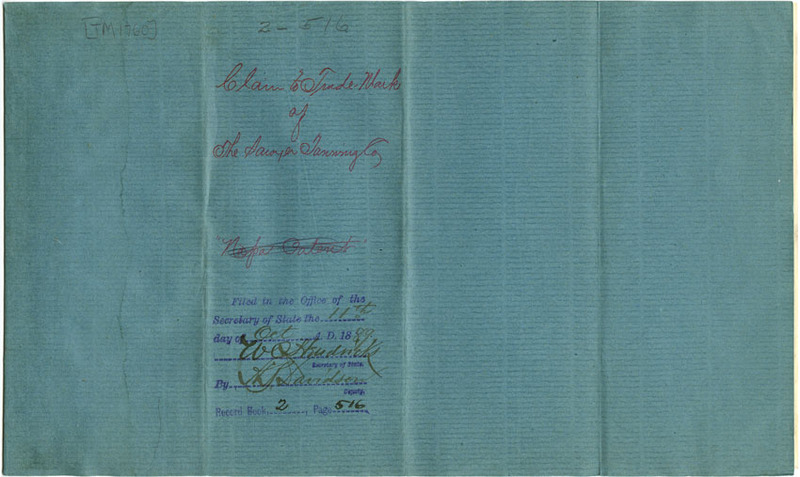 [TM1760]
2-516
Claim to Trade-Mark
of
The Sawyer Tanning Co
"Napa Patent"
Filed in the Office of the
Secretary of State the 11th
day of Oct A.D. 18
W C Hendricks
Secretary of State.
By, Davidson
Deputy.
Record Book, 2, Page 516